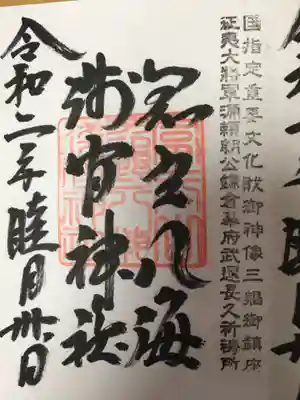 国指定重要文化財御神像三軀御鎮座
征夷大將軍源頼朝公鎌倉幕府武運長久祈祷所
忍野八海
浅間神社
令和二年睦月卅日